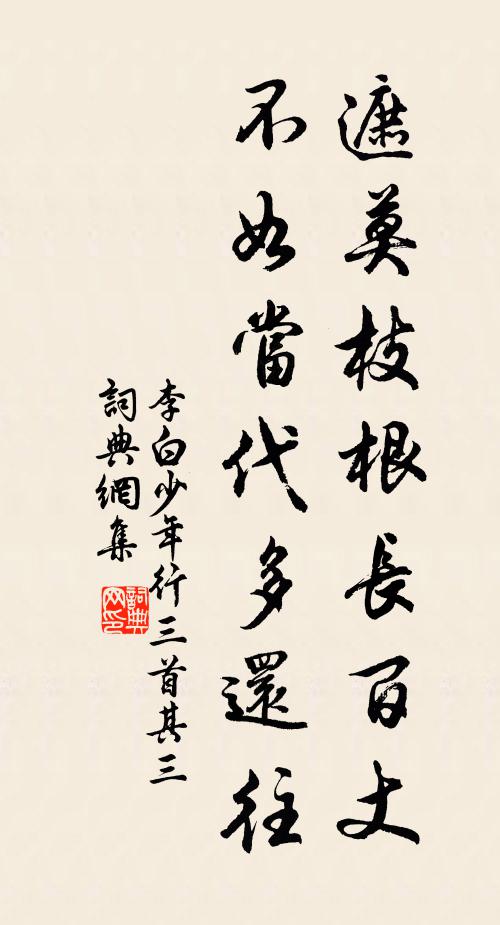 遮莫枝根長百丈
不如當代多還往
李白少年行三首其三
詞典網集
詞典网印